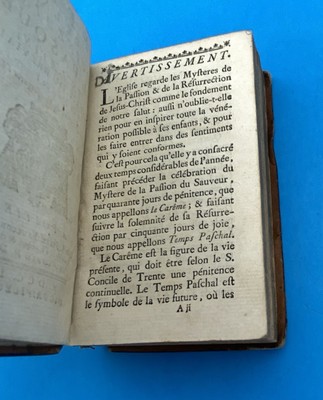 DIVERTISSEMENT.
L'Eglise regarde les Mysteres de
la Passion & de la Résurrection
de Jesus-Christ comme le fondement
de notre salut: aussi n'oublie-t-elle
rien pour en inspirer toute la véné-
ration possible à ses enfants, & pour
les faire entrer dans des sentiments
qui y soient conformes.
C'est pour cela qu'elle y a consacré
deux temps considérables de l'année,
faisant précéder la célébration du
Mystere de la Passion du Sauveur,
par quarante jours de pénitence, que
nous appellons le Carême; & faisant
suivre la solemnité de sa Résurre-
ction par cinquante jours de joie,
que nous appellons Temps Paschal.
Le Carême est la figure de la vie
présente, qui doit être selon le S.
Concile de Trente une pénitence
continuelle. Le Temps Paschal est
le symbole de la vie future, où les
A ij